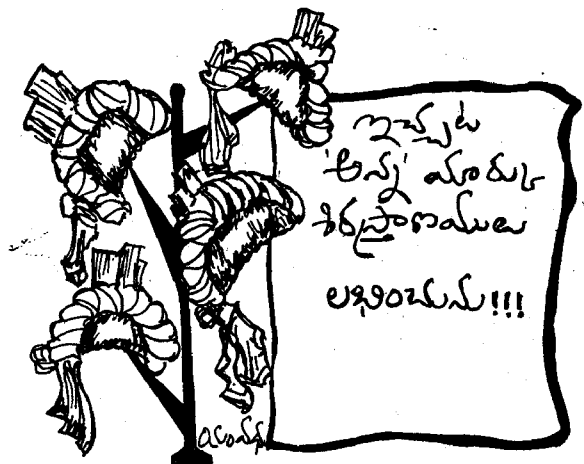 ఇచ్చట
'అన్న' మార్కు
శిరస్త్రాణములు
లభించును!!!